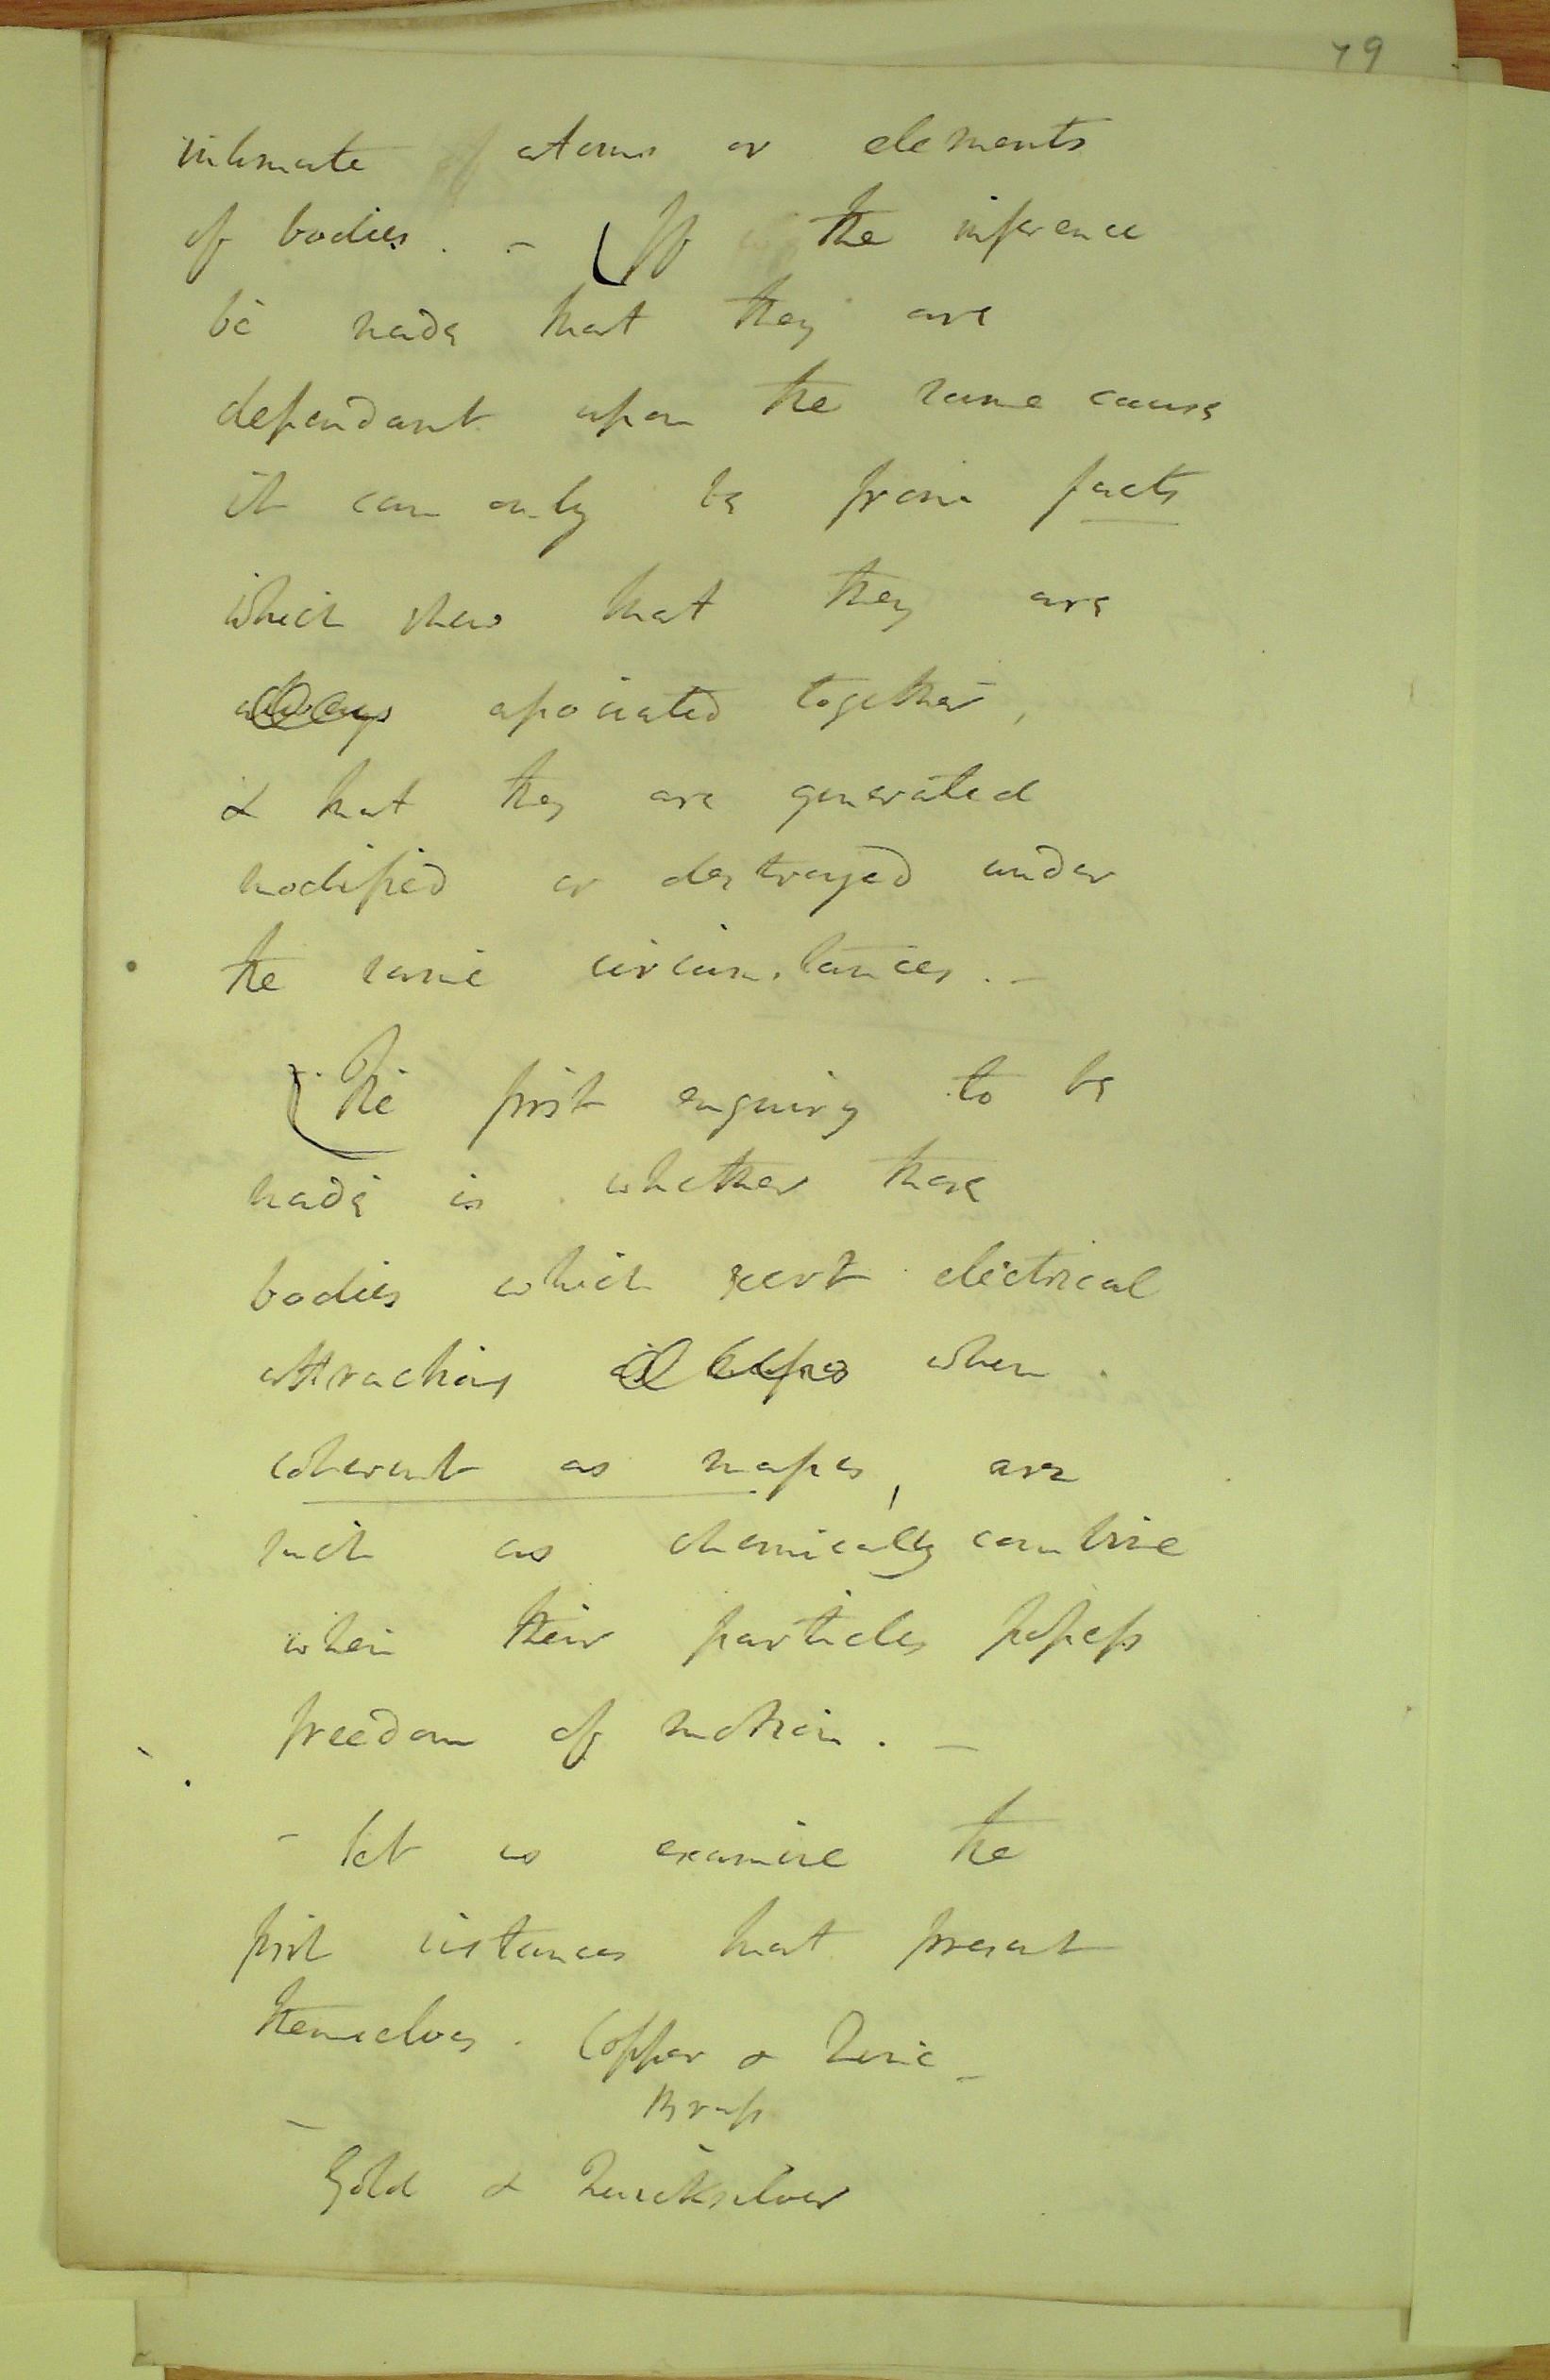 79
intimate atoms or elements
of bodies. - If the inference
be made that they are
dependant upon the same cause
it can only be from facts
which shew that they are
always associated together,
& that they are generated
modified or destroyed under
the same circumstances. -
The first enquiry to be
made is whether those
bodies which exert electrical
attractions when
coherent as masses, are
such as chemically combine
when their particles possess
freedom of motion. -
- Let us examine the
first instances that present
themselves. Copper & Zinc -
Brass
- Gold & Quicksilver